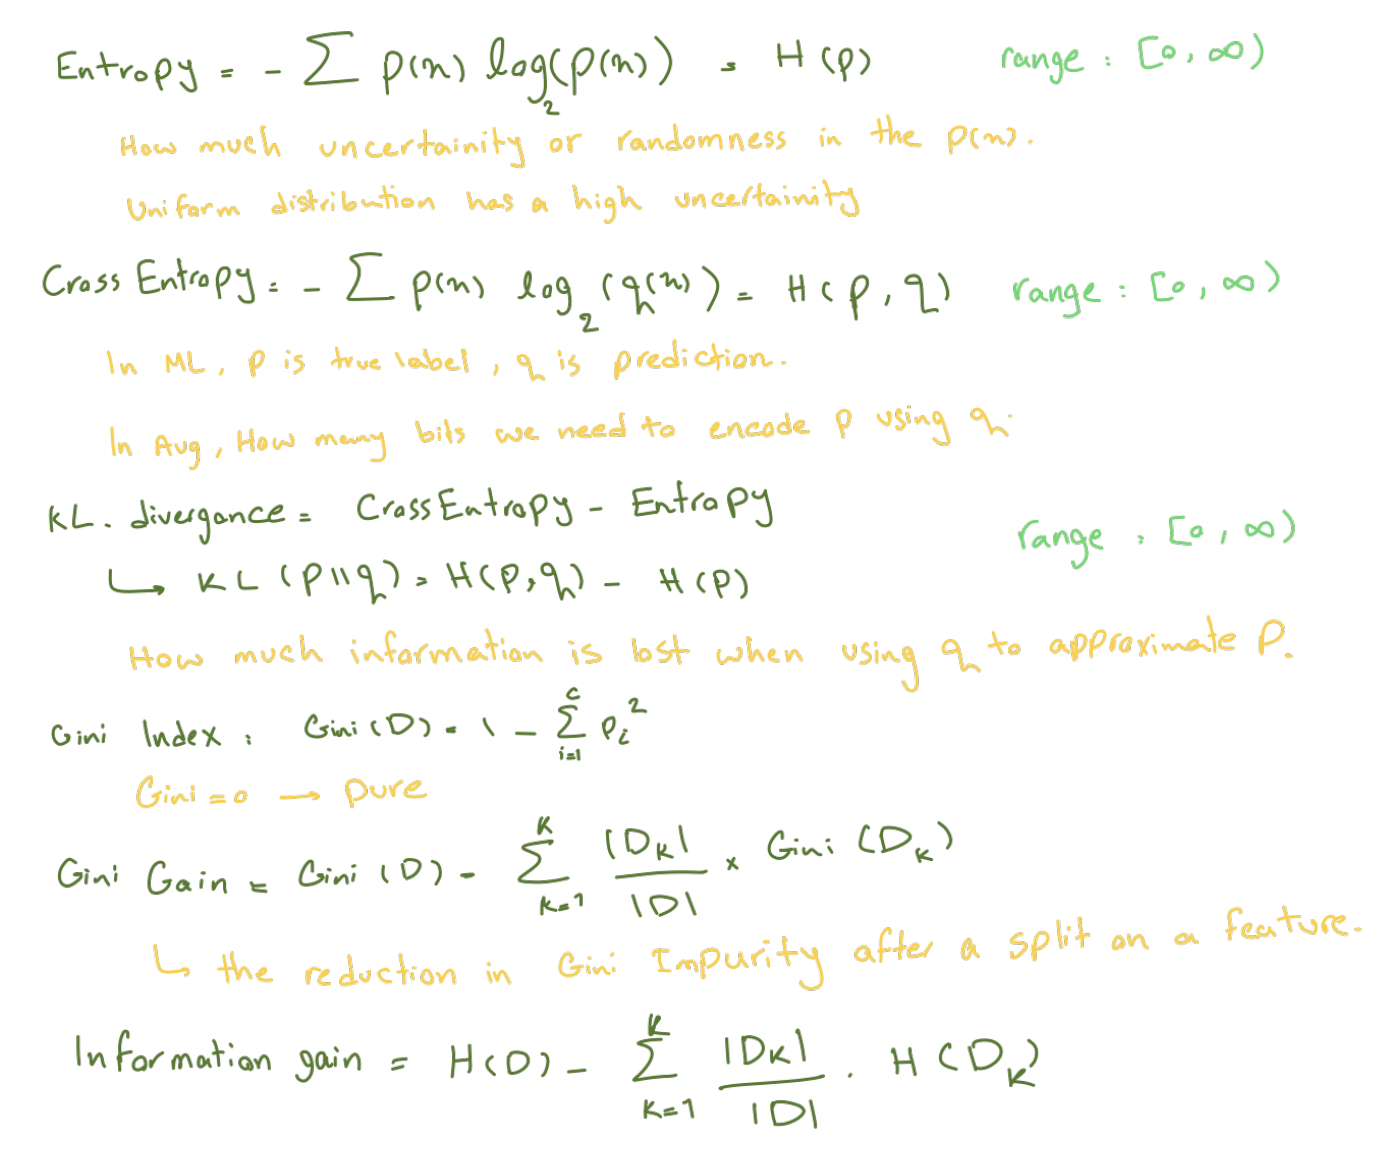 Entropy = - ∑ p(x) log₂(p(x)) = H(p) range : [0, ∞)
How much uncertainity or randomness in the p(x).
Uniform distribution has a high uncertainity
Cross Entropy = - ∑ p(x) log₂(q(x)) = H(p, q) range : [0, ∞)
In ML, p is true label, q is prediction.
In Avg, How many bits we need to encode p using q.
KL. divergance = CrossEntropy - Entropy
range : [0, ∞)
↳ KL (p||q) = H(p,q) - H(p)
How much information is lost when using q to approximate P.
Gini Index : Gini(D) = 1 - ∑_{i=1}^{c} p_i²
Gini = 0 → pure
Gini Gain = Gini (D) - ∑_{k=1}^{K} |D_K| / |D| × Gini (D_K)
↳ the reduction in Gini Impurity after a split on a feature.
Information gain = H(D) - ∑_{K=1}^{K} |D_K| / |D| . H(D_K)